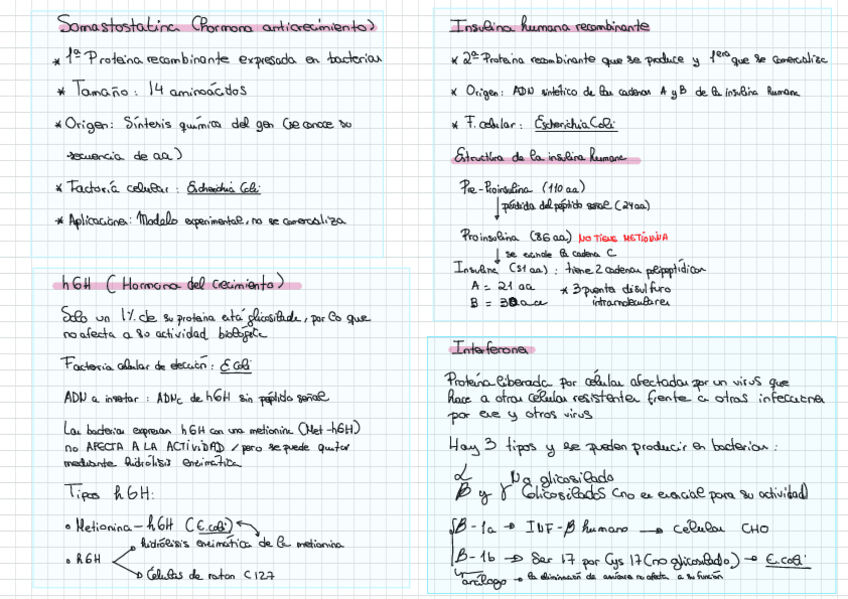 Somastostatina (hormona anticrecimiento)
* 1ª Proteina recombinante expresada en bacterias
* Tamaño: 14 aminoácidos
* Origen: Síntesis química del gen (se conoce su
secuencia de aa)
* Factoría celular: Escherichia Coli
* Aplicaciones: Modelo experimental, no se comercializa
hGH (Hormona del crecimiento)
Solo un 1% de su proteina está glicosilada, por lo que
no afecta a su actividad biologica
Factoria celular de elección: E.Coli
ADN a insertar: ADNc de hGH sin péptido señal
Las bacterias expresan hGH con una metionina (Met-hGH)
no AFECTA A LA ACTIVIDAD / pero se puede quitar
mediante hidrólisis enzimática
Tipos hGH:
• Metionina-hGH (E.coli)
hidrólisis enzimática de la metionina
• hGH
Células de raton C127
Insulina humana recombinante
* 2ª Proteina recombinante que se produce y 1era que se comercializa
* Origen: ADN sintético de las cadenas A y B de la insulina humana
* F. celular: Escherichia Coli
Estructura de la insulina humana
Pre-Proinsulina (110 aa)
pérdida del péptido señal (24aa)
Proinsulina (86 aa) NO TIENE METIONINA
se escinde la cadena C
Insulina (51 aa): tiene 2 cadenas peptídicas
A = 21 aa * 3 puentes disulfuro
B = 30 aa intramoleculares
Interferones
Proteína liberada por células afectadas por un virus que
hace a otras células resistentes frente a otras infecciones
por ese y otros virus
Hay 3 tipos y se pueden producir en bacterias:
α No glicosilado
β y γ Glicosilados (no es esencial para su actividad)
β-1a → INF-β humano → celulas CHO
β-1b → Ser 17 por Cys 17 (no glicosilado) → E.coli
análogo → la eliminación de azúcares no afecta a su función